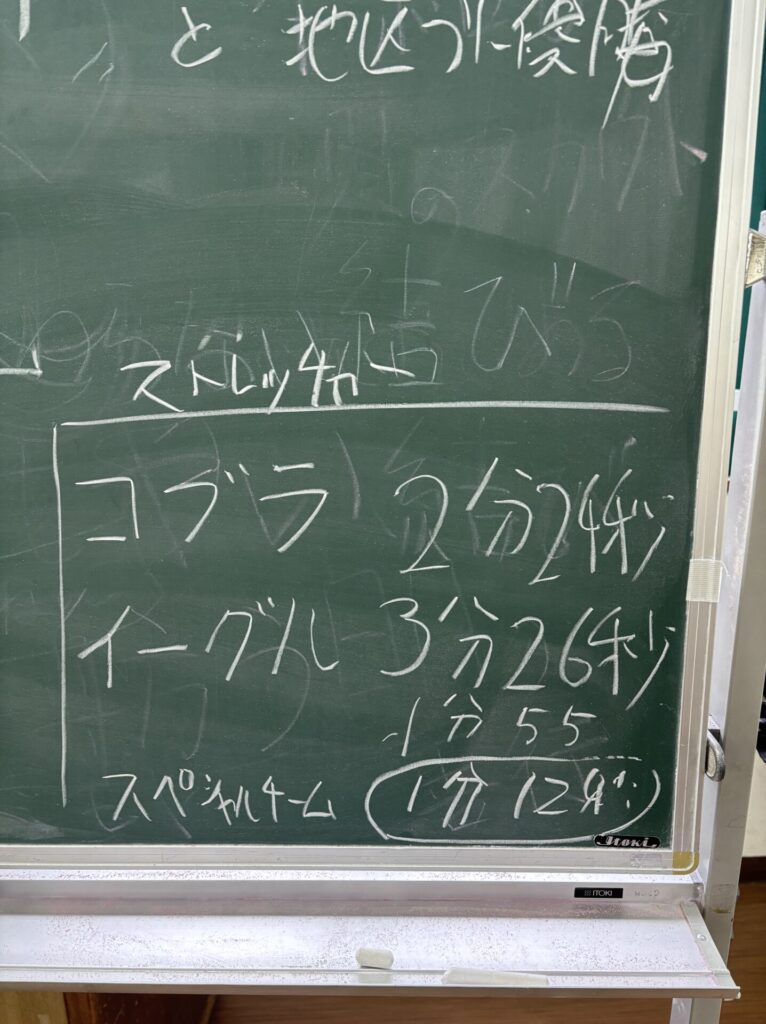 と 地区ブロ優勝
結びめ
ストレッチャー
コブラ 2分24秒
イーグル 3分26秒
1分55
スペシャルチーム 1分12秒
itoki
ITOKI